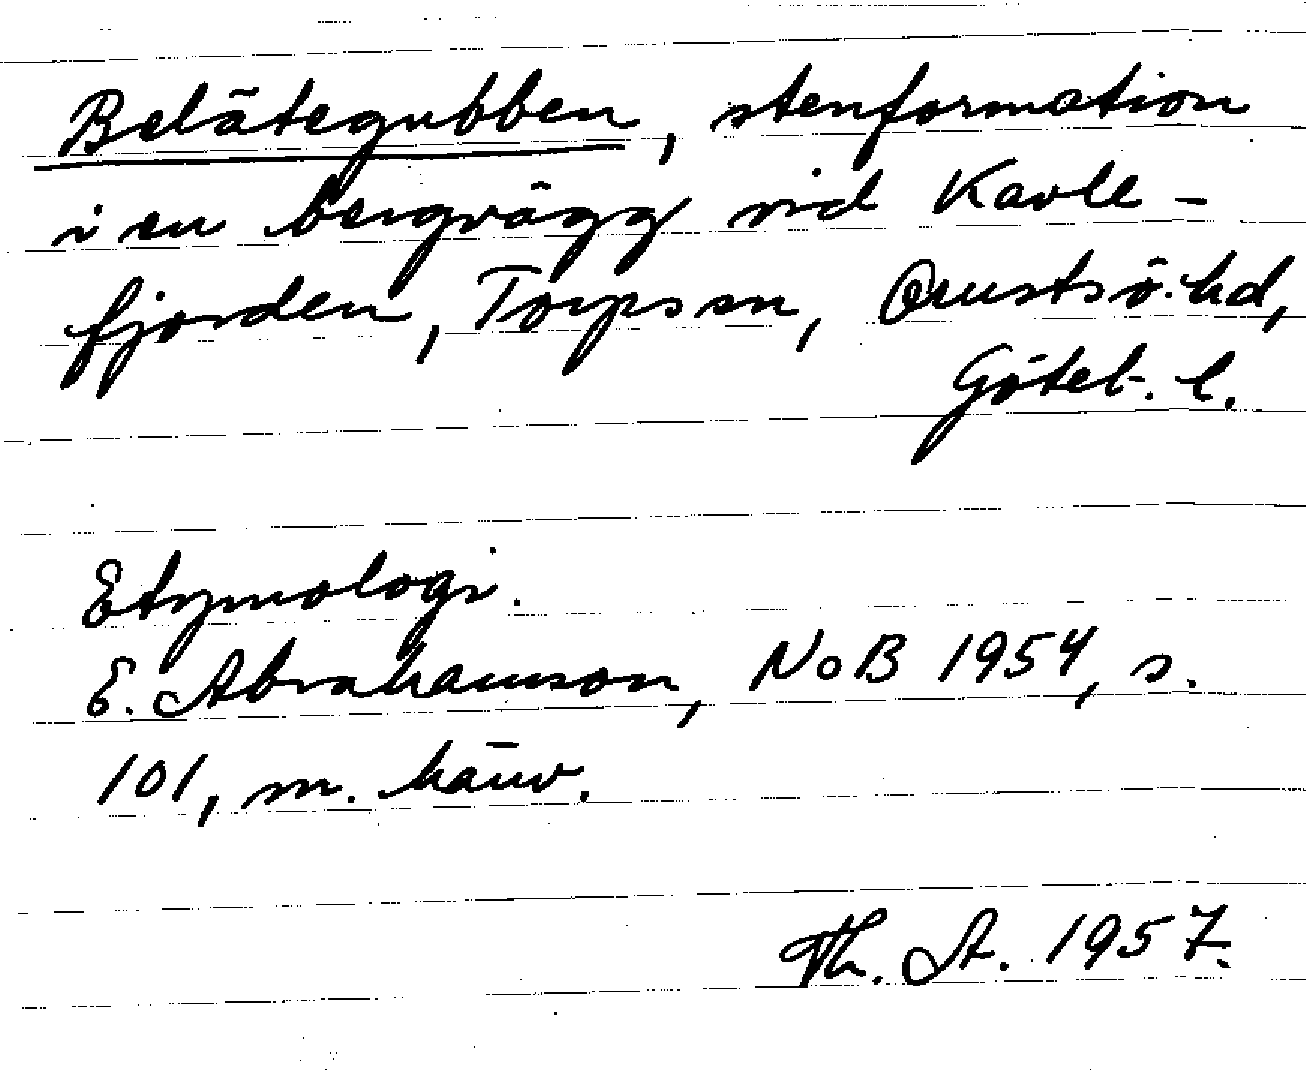 Belätegubben, stenformation
i en bergvägg vid Kavle-
fjorden, Torps sn, Orusts ö. hd,
Göteb. l.
Etymologi.
E. Abrahamson, NoB 1954, s.
101, m. hänv.
Th. A. 1957.